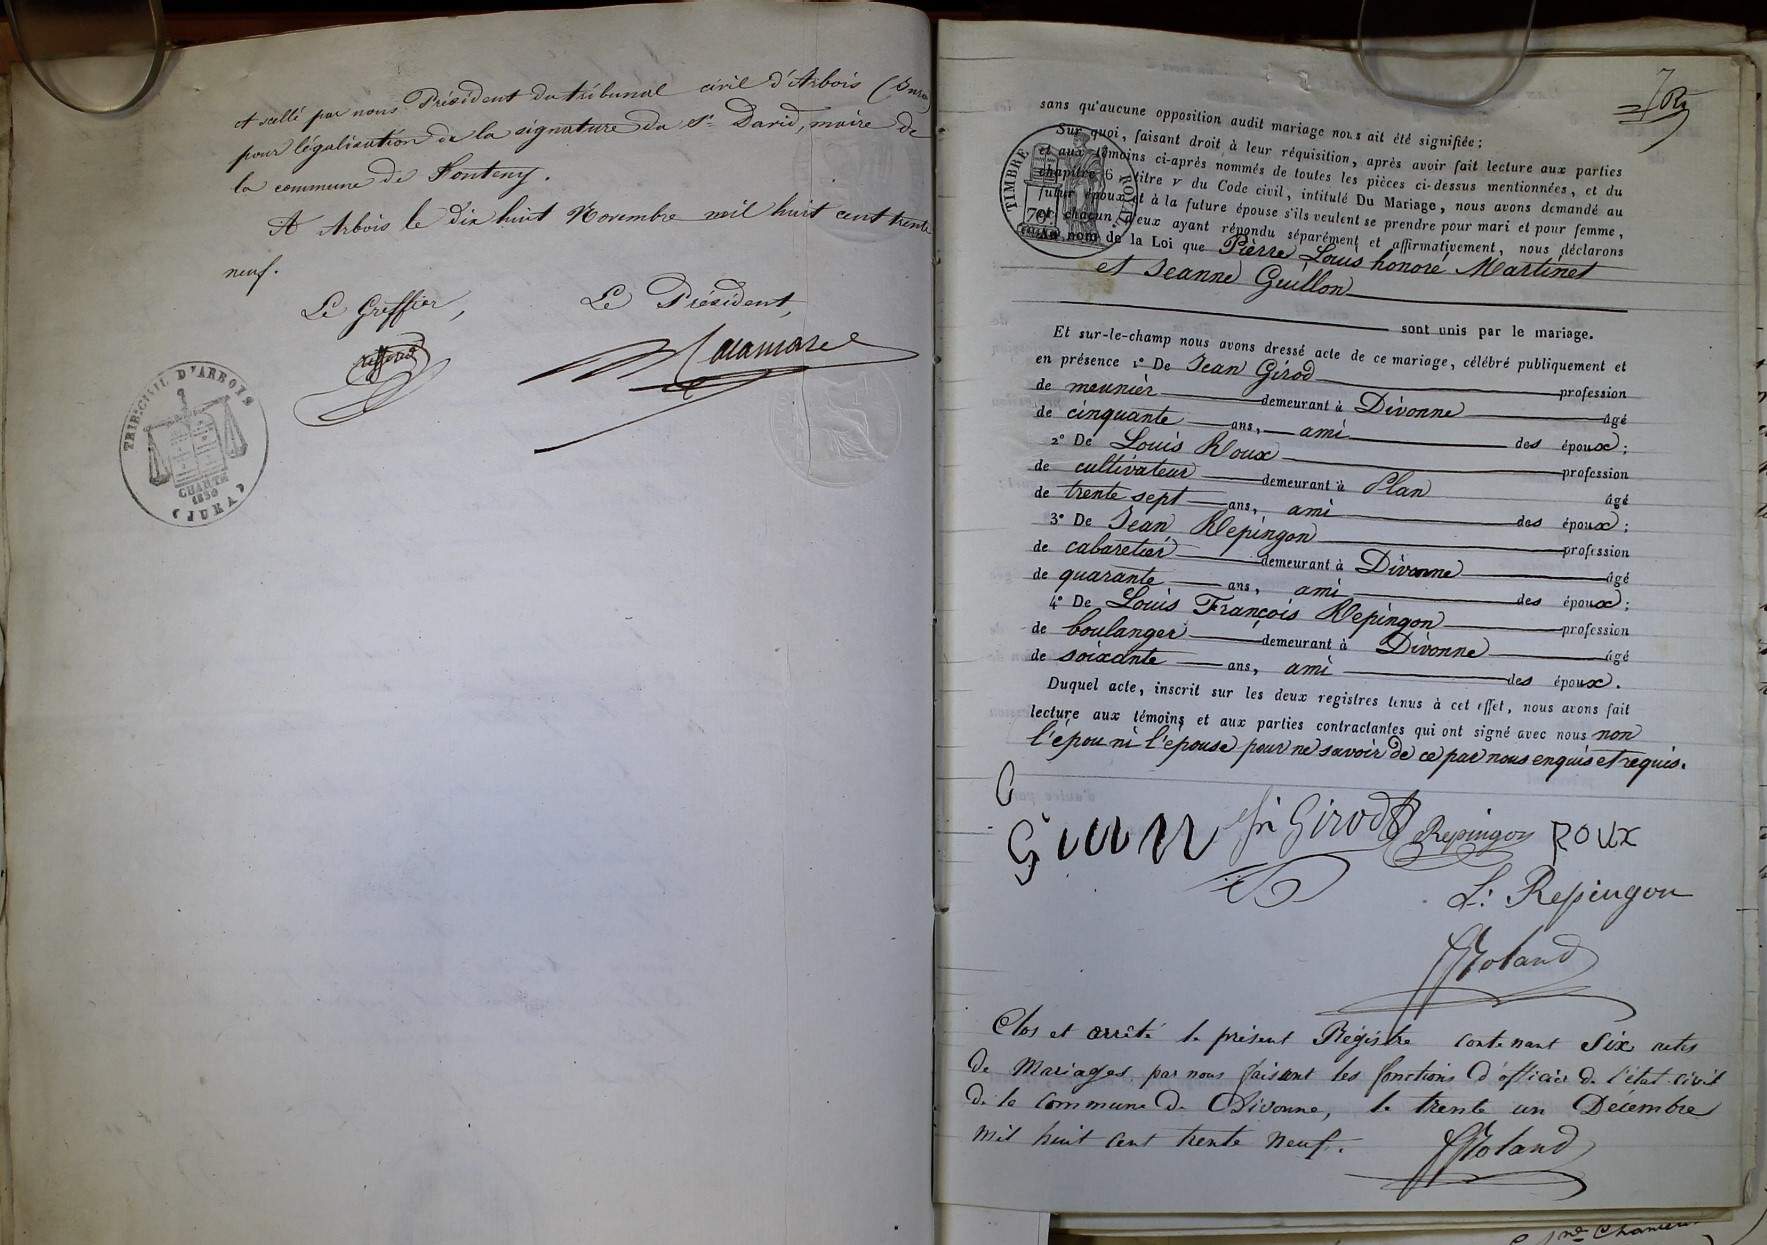 et scellé par nous Président du tribunal civil d'Arbois (Jura)
pour légalisation de la signature du Sr David, maire de
la commune de Fonteny.
A Arbois le dix huit Novembre mil huit cent trente
neuf.
Le Greffier,
Le Président,
TRIB. CIVIL D'ARBOIS
CHARTE
1830
(JURA)
7
sans qu'aucune opposition audit mariage nous ait été signifiée ;
Sur quoi, faisant droit à leur réquisition, après avoir fait lecture aux parties
et aux témoins ci-après nommés de toutes les pièces ci-dessus mentionnées, et du
chapitre 6 titre v du Code civil, intitulé Du Mariage, nous avons demandé au
futur époux et à la future épouse s'ils veulent se prendre pour mari et pour femme,
et chacun d'eux ayant répondu séparément et affirmativement, nous déclarons
Au nom de la Loi que Pierre Louis honoré Martinet
et Jeanne Guillon
TIMBRE ROYAL
70
sont unis par le mariage.
Et sur-le-champ nous avons dressé acte de ce mariage, célébré publiquement et
en présence 1° De Jean Girod profession
de meunier demeurant à Divonne âgé
de cinquante ans, ami des époux ;
2° De Louis Roux profession
de cultivateur demeurant à Plan âgé
de trente sept ans, ami des époux ;
3° De Jean Repingon profession
de cabaretier demeurant à Divonne âgé
de quarante ans, ami des époux ;
4° De Louis François Repingon profession
de boulanger demeurant à Divonne âgé
de soixante ans, ami des époux.
Duquel acte, inscrit sur les deux registres tenus à cet effet, nous avons fait
lecture aux témoins et aux parties contractantes qui ont signé avec nous non
l'épou ni l'epouse pour ne savoir de ce par nous enquis et requis.
Girod Repingon ROUX
L: Repingon
Roland
Clos et arrêté le présent Régistre contenant Six actes
de Mariages, par nous faisant les fonctions d'officier de l'état civil
de la commune de Divonne, le trente un Décembre
mil huit cent trente neuf.
Roland